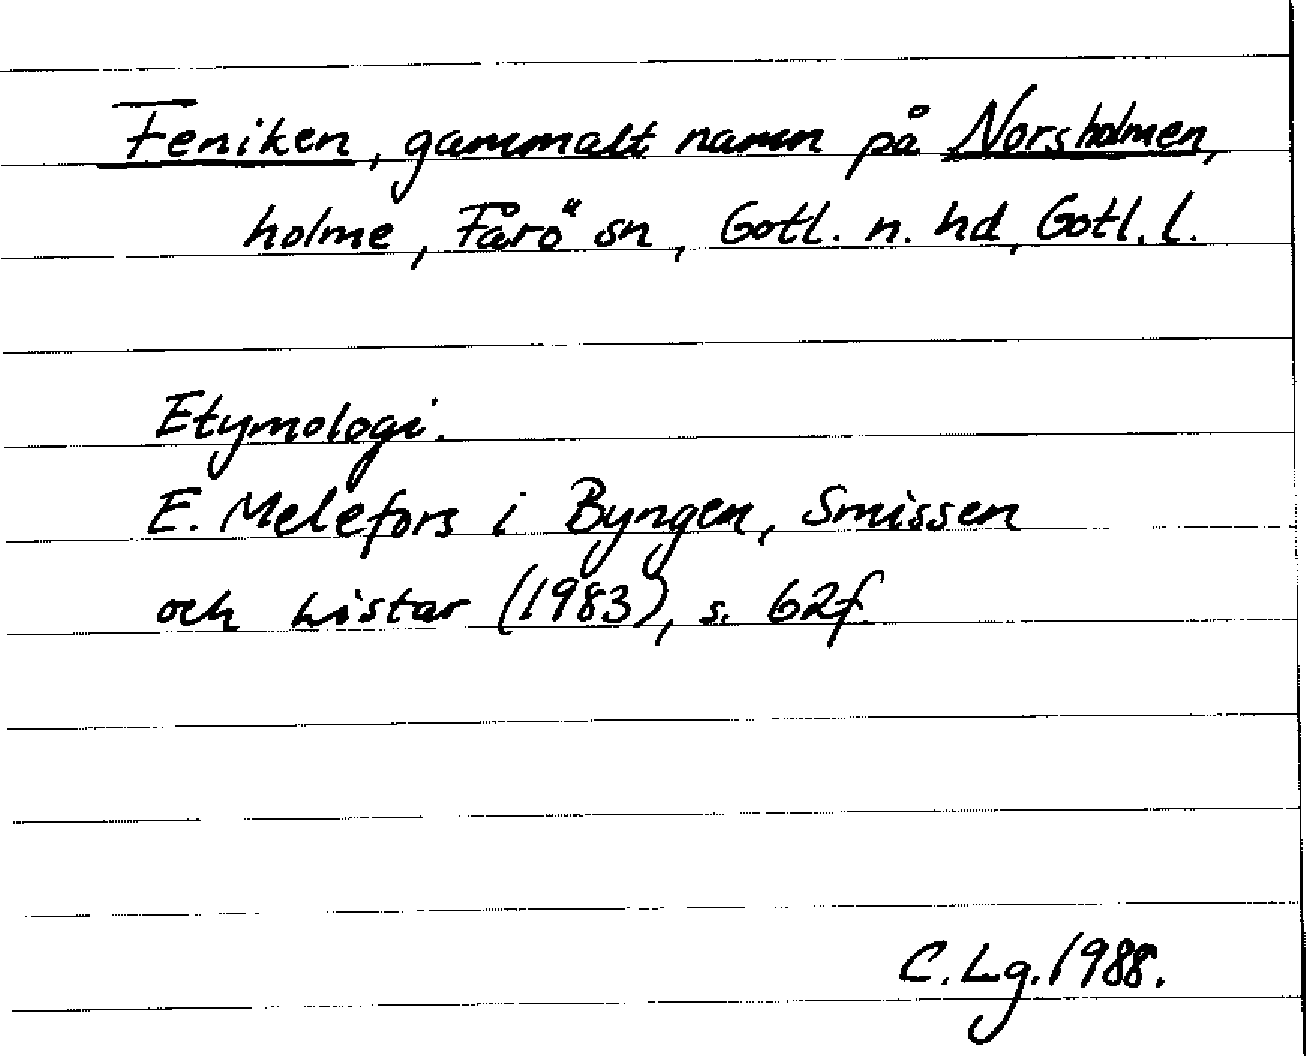 Feniken, gammalt namn på Norsholmen,
holme, Fårö sn, Gotl. n. hd, Gotl. l.
Etymologi.
E. Melefors i Byngen, Smissen
och Listar (1983), s. 62f.
C. Lg. 1988.